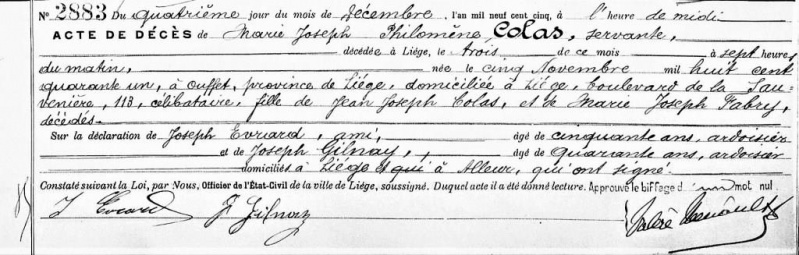 No 2883 Du quatrième jour du mois de décembre, l'an mil neuf cent cinq, à l'heure de midi
ACTE DE DÉCÈS de Marie Joseph Philomène Colas, servante,
décédée à Liège, le trois de ce mois à sept heures
du matin, née le cinq Novembre mil huit cent
quarante un, à Ouffet, province de Liége, domiciliée à Liége, boulevard de la Sau-
venière, 113, célibataire, fille de Jean Joseph Colas, et de Marie Joseph Fabry,
décédés.
Sur la déclaration de Joseph Evrard, ami, âgé de cinquante ans, ardoisier
et de Joseph Gilnay, âgé de quarante ans, ardoisier
domiciliés à Liége et qui à Alleur, qui ont signé.
Constaté suivant la Loi, par Nous, Officier de l'État-Civil de la ville de Liège, soussigné. Duquel acte il a été donné lecture. Approuvé le biffage d'un mot nul.
J Evrard J Gilnay